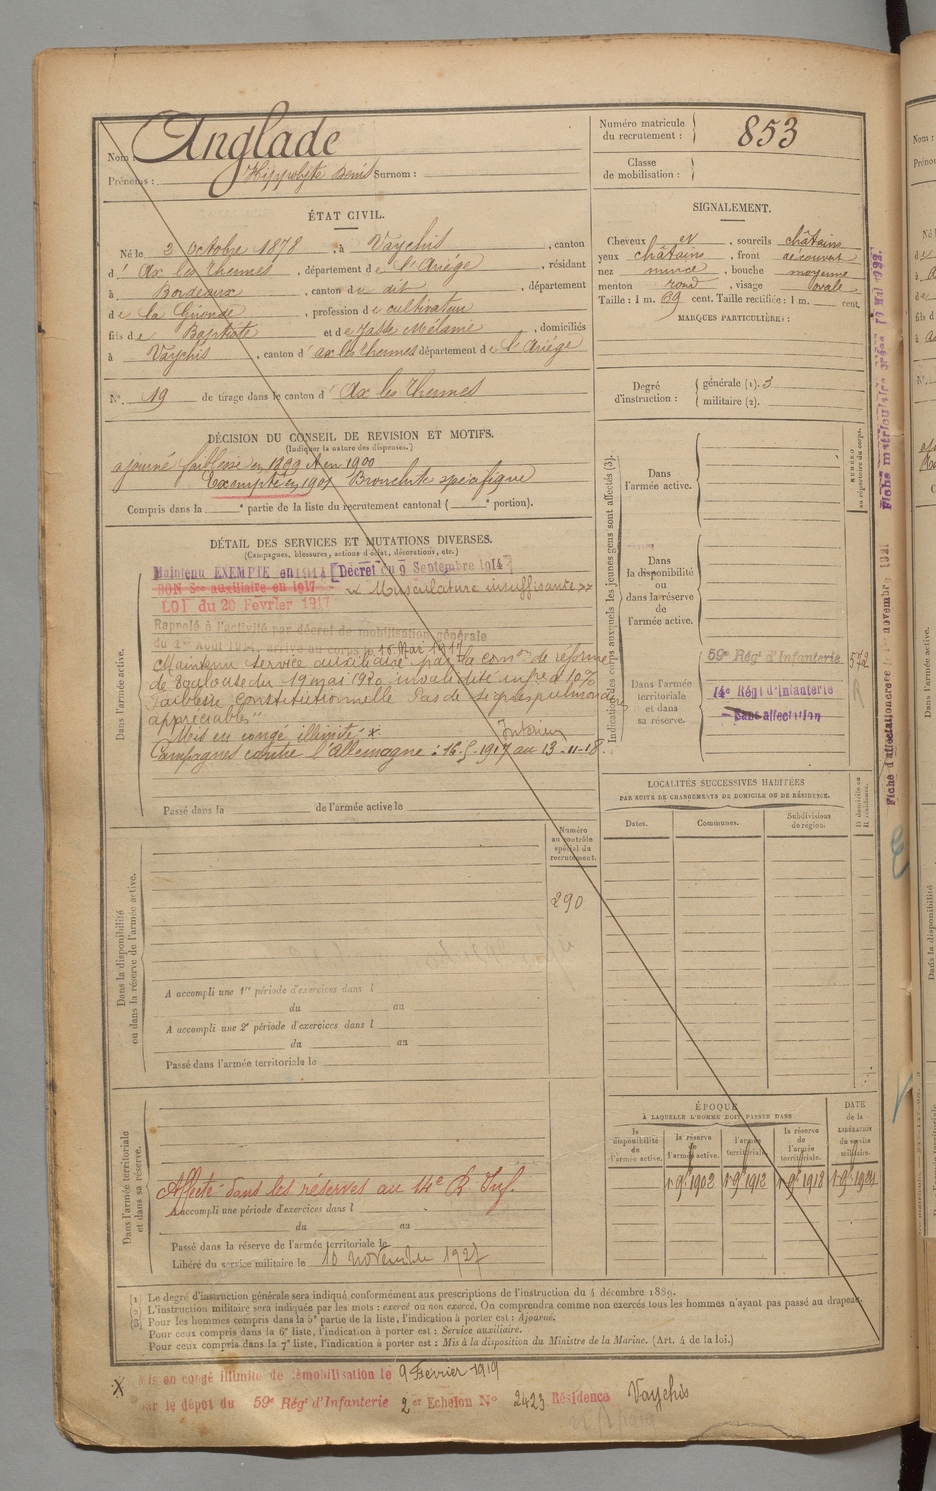 Nom : Anglade
Prénoms : Hippolyte Denis Surnom :
Numéro matricule du recrutement : 853
Classe de mobilisation :
ÉTAT CIVIL.
Né le 3 Octobre 1878, à Vaychis, canton
d' Ax les Thermes, département de l'Ariége, résidant
à Bordeaux, canton du dit, département
de la Gironde, profession de cultivateur
fils de Baptiste et de Jalbe Mélanie, domiciliés
à Vaychis, canton d' ax les thermes département de l'Ariége
N° 19 de tirage dans le canton d' Ax les Thermes
SIGNALEMENT.
Cheveux et, sourcils châtains
yeux châtains, front découvert
nez mince, bouche moyenne
menton rond, visage ovale
Taille : 1 m. 69 cent. Taille rectifiée : 1 m. cent.
MARQUES PARTICULIÈRES :
Degré d'instruction : générale (1). 3
militaire (2).
DÉCISION DU CONSEIL DE REVISION ET MOTIFS.
(Indiquer la nature des dispenses.)
ajourné faiblesse en 1899 et en 1900
Exempté en 1901 Bronchite spécifique
Compris dans la e partie de la liste du recrutement cantonal ( e portion).
DÉTAIL DES SERVICES ET MUTATIONS DIVERSES.
(Campagnes, blessures, actions d'éclat, décorations, etc.)
Dans l'armée active.
Maintenu EXEMPTE en 1914 [Décret du 9 Septembre 1914]
BON Sce auxiliaire en 1917 « Musculature insuffisante »
LOI du 20 Fevrier 1917
Rappelé à l'activité par décret de mobilisation générale
du 1er Août 1914, arrivé au corps le 16 Mai 1917
Maintenu Service auxiliaire par la comon de réforme
de Toulouse du 19 mai 1920 invalidité infre à 10%
Faiblesse Constitutionnelle Pas de signes pulmonaires
appréciables"
Mis en congé illimité x Intérieur
Campagnes contre l'Allemagne : 16-5-1917 au 13-11-18.
Passé dans la de l'armée active le
Indication des corps auxquels les jeunes gens sont affectés (3).
NUMÉRO au répertoire du corps.
Dans l'armée active.
Dans la disponibilité ou dans la réserve de l'armée active.
Dans l'armée territoriale et dans sa réserve.
59e Régt d'Infanterie 572
14e Régt d'Infanterie
Sans affectation
LOCALITÉS SUCCESSIVES HABITÉES
PAR SUITE DE CHANGEMENTS DE DOMICILE OU DE RÉSIDENCE.
Dates. Communes. Subdivisions de région. D domicile ou R résidence.
Numéro au contrôle spécial du recrutement.
290
Dans la disponibilité ou dans la réserve de l'armée active.
A accompli une 1re période d'exercices dans l
du au
A accompli une 2e période d'exercices dans l
du au
Passé dans l'armée territoriale le
Dans l'armée territoriale et dans sa réserve.
Affecté dans les réserves au 14e R. Inf.
A accompli une période d'exercices dans l
du au
Passé dans la réserve de l'armée territoriale le
Libéré du service militaire le 10 novembre 1927
ÉPOQUE
À LAQUELLE L'HOMME DOIT PASSER DANS
la disponibilité de l'armée active. la réserve de l'armée active. l'armée territoriale. la réserve de l'armée territoriale. DATE de la LIBÉRATION du service militaire.
1 9bre 1902 1 9bre 1912 1 9bre 1918 1 9bre 1924
(1) Le degré d'instruction générale sera indiqué conformément aux prescriptions de l'instruction du 4 décembre 1889.
(2) L'instruction militaire sera indiquée par les mots : exercé ou non exercé. On comprendra comme non exercés tous les hommes n'ayant pas passé au drapeau.
(3) Pour les hommes compris dans la 5e partie de la liste, l'indication à porter est : Ajourné.
Pour ceux compris dans la 6e liste, l'indication à porter est : Service auxiliaire.
Pour ceux compris dans la 7e liste, l'indication à porter est : Mis à la disposition du Ministre de la Marine. (Art. 4 de la loi.)
X Mis en congé illimité de démobilisation le 9 Fevrier 1919
par le dépot du 59e Régt d'Infanterie 2er Echelon N° 2423 Résidence Vaychis